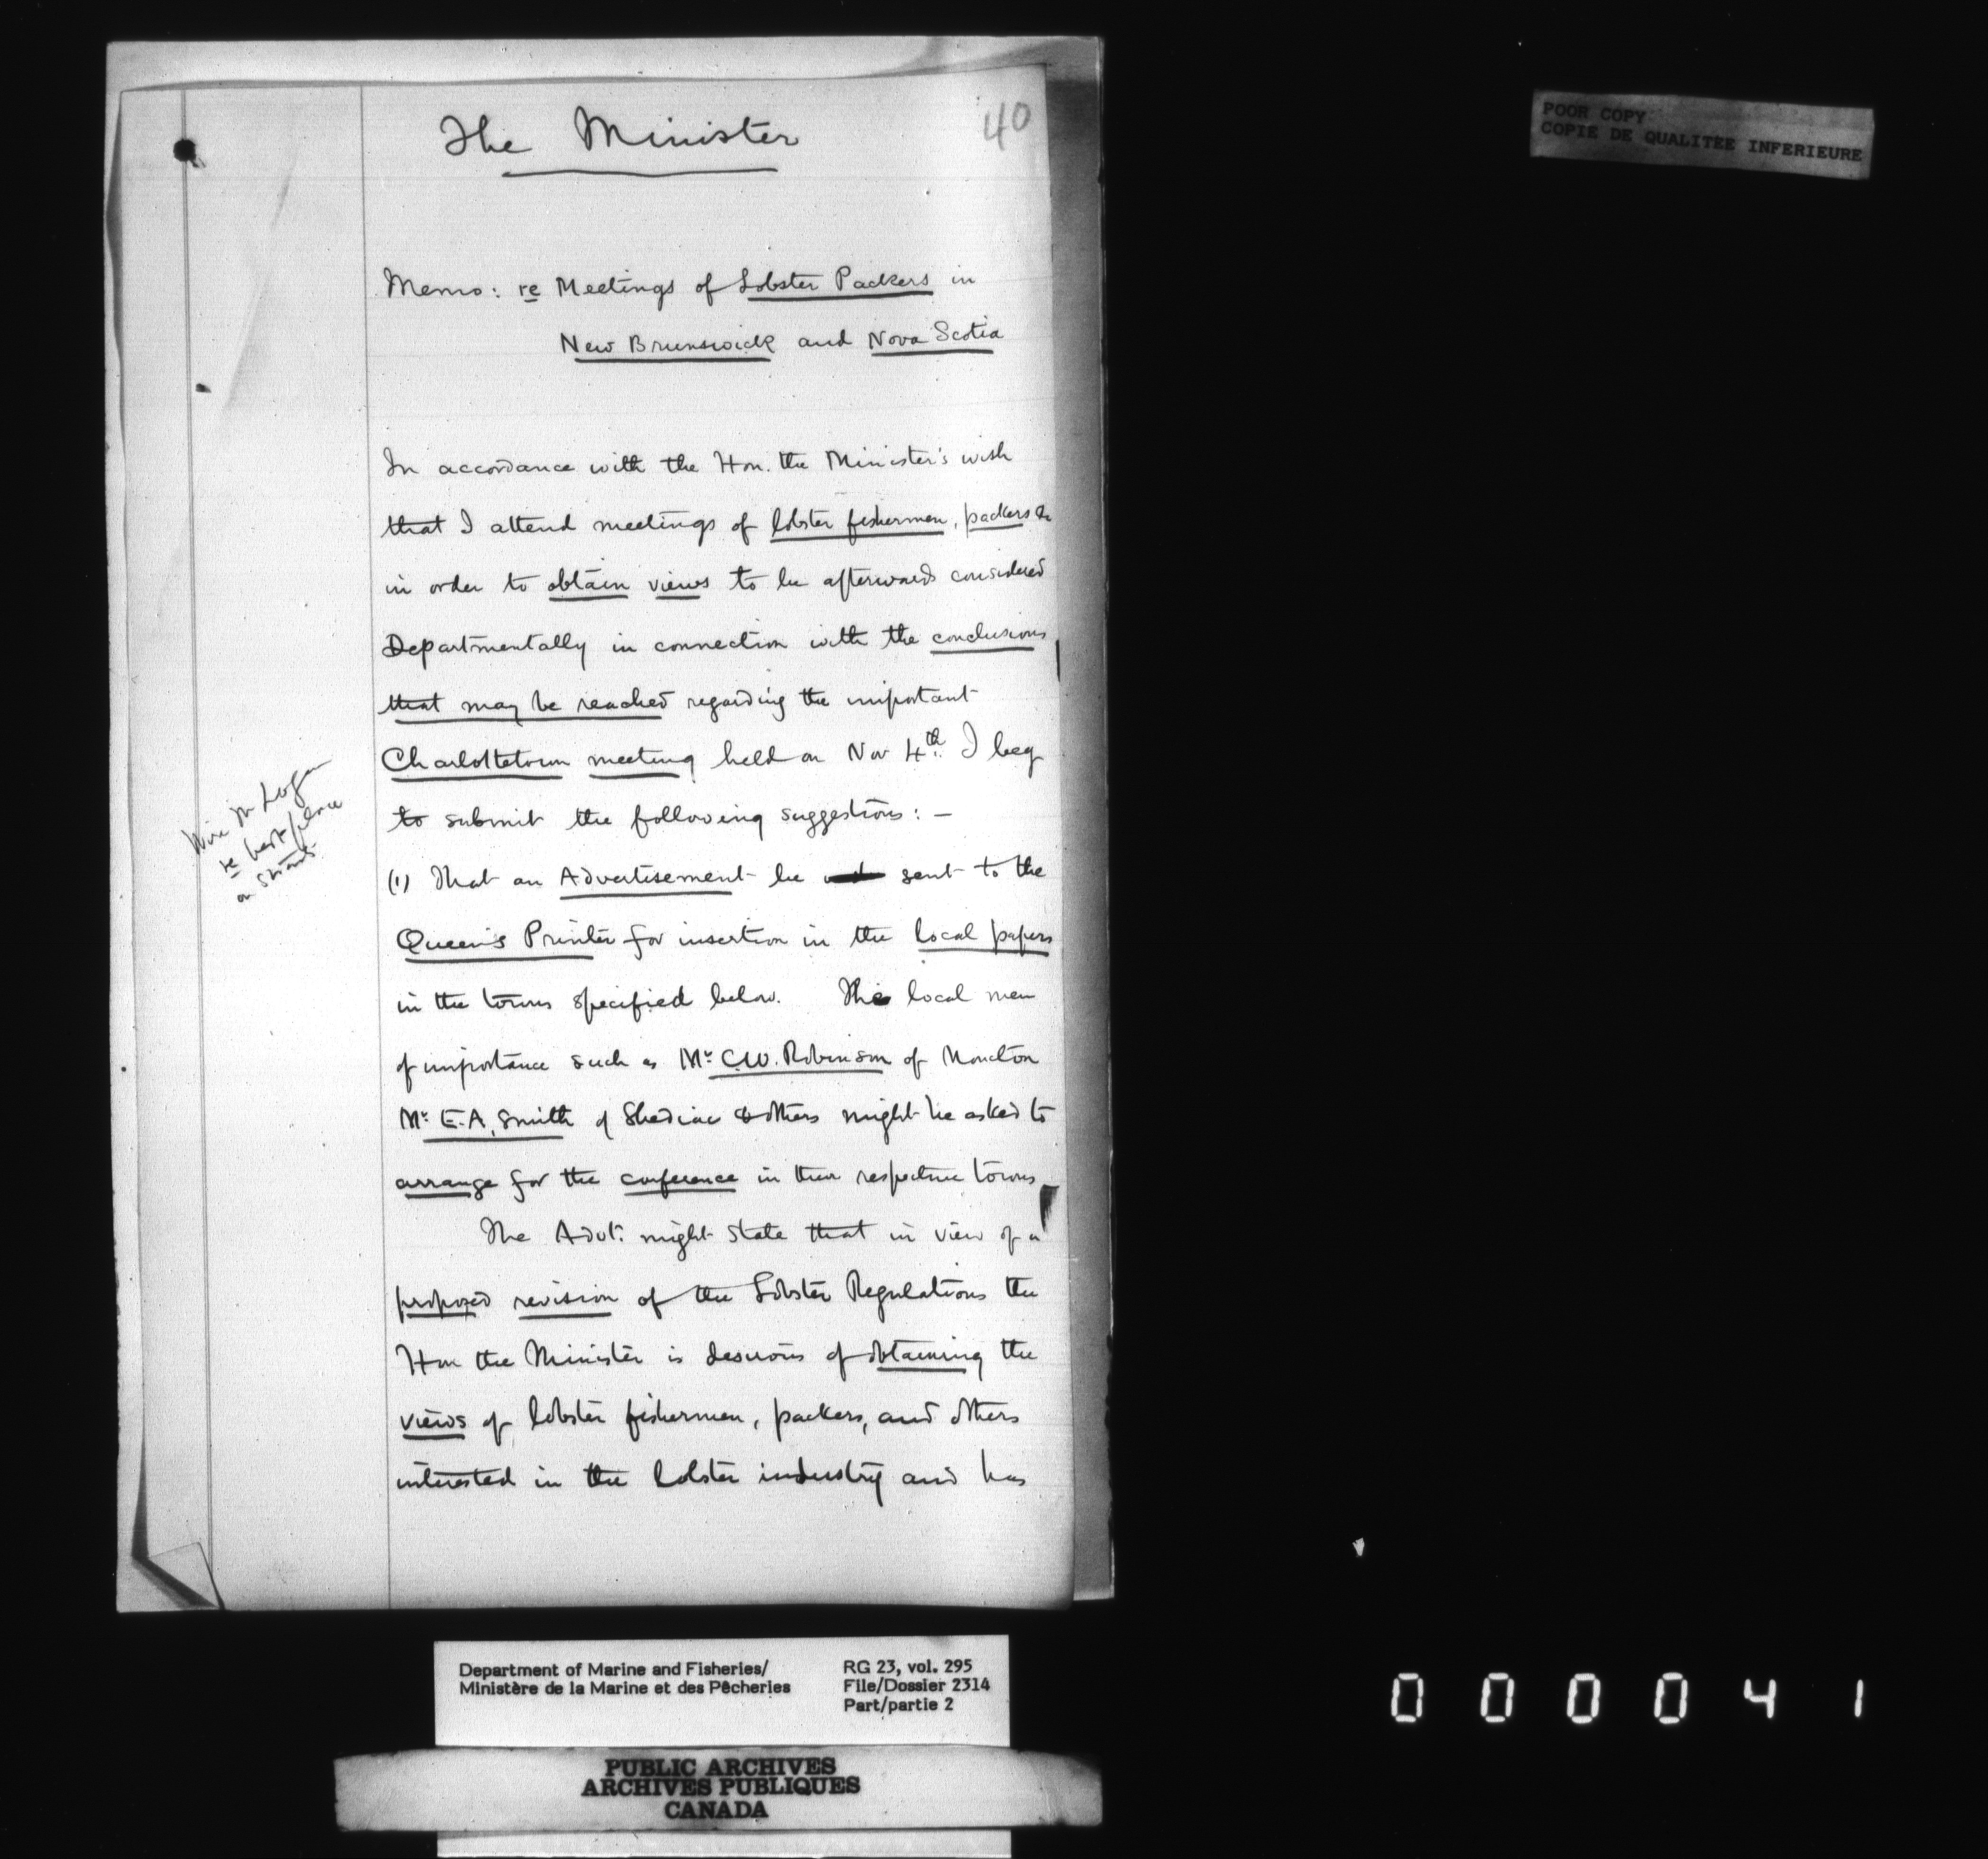 40
The Minister
Memo: re Meetings of Lobster Packers in
New Brunswick and Nova Scotia
In accordance with the Hon. the Minister's wish
that I attend meetings of lobster fishermen, packers &c
in order to obtain views to be afterwards considered
Departmentally in connection with the conclusions
that may be reached regarding the important
Charlottetown meeting held on Nov 4th. I beg
to submit the following suggestions: —
Wire Mr Logan
re best place
on
(1) That an Advertisement be sent to the
Queen's Printer for insertion in the local papers
in the towns specified below. The local men
of importance such as Mr C.W. Robinson of Moncton
Mr E.A. Smith of Shediac & others might be asked to
arrange for the conference in their respective towns
The Advt. might state that in view of a
proposed revision of the Lobster Regulations the
Hon the Minister is desirous of obtaining the
views of lobster fishermen, packers, and others
interested in the lobster industry and has
POOR COPY
COPIE DE QUALITEE INFERIEURE
Department of Marine and Fisheries/
Ministère de la Marine et des Pêcheries
RG 23, vol. 295
File/Dossier 2314
Part/partie 2
PUBLIC ARCHIVES
ARCHIVES PUBLIQUES
CANADA
000041